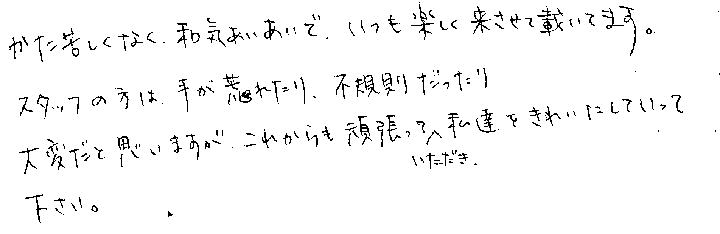 かた苦しくなく、和気あいあいで、いつも楽しく来させて載いてます。
スタッフの方は、手が荒れたり、不規則だったり
大変だと思いますが、これからも頑張っていただき、私達をきれいにしていって
下さい。